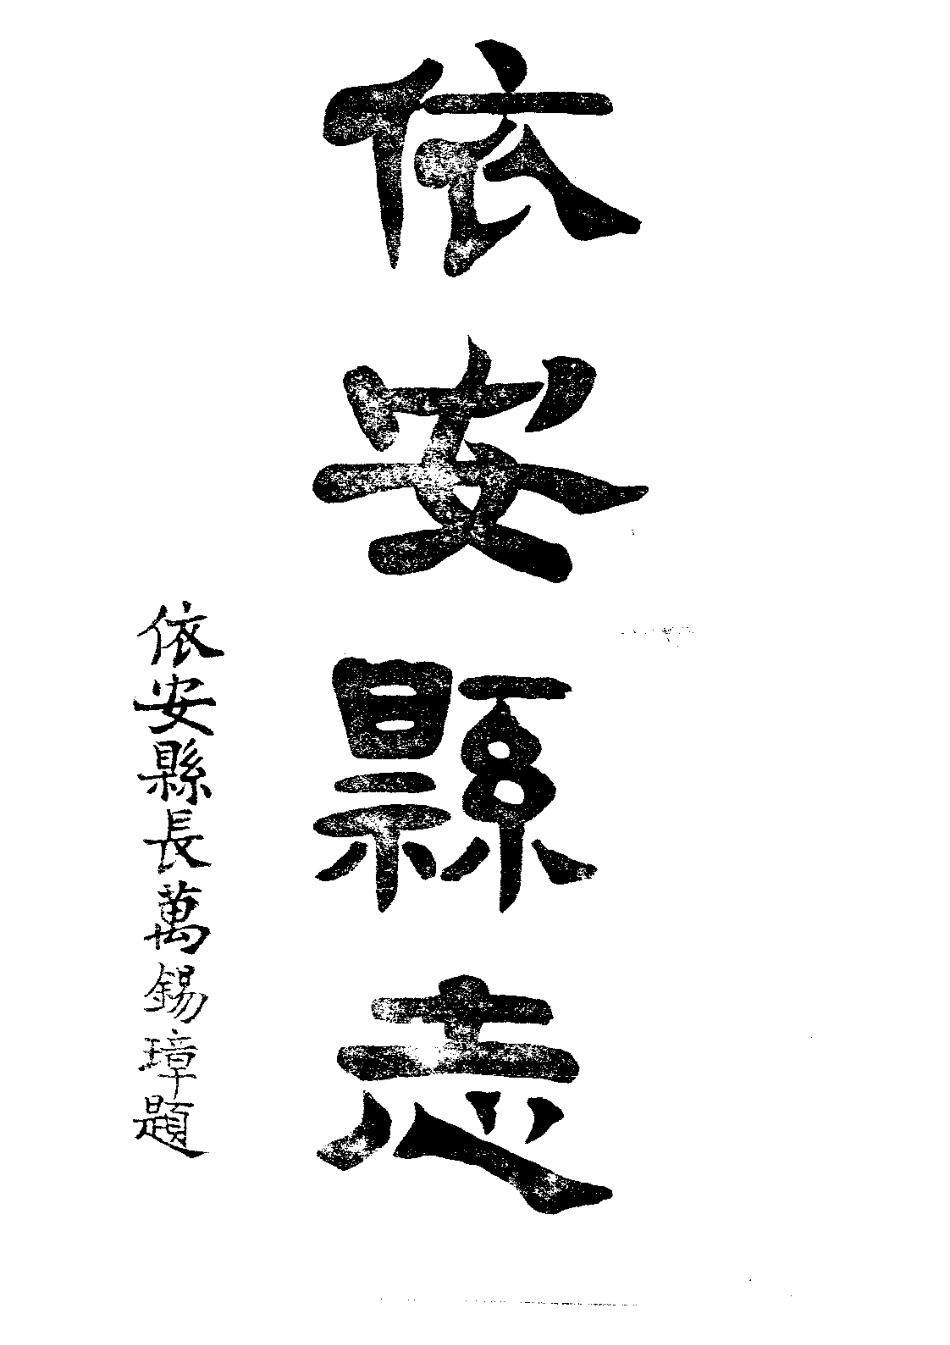 依安縣志
依安縣長萬錫璋題